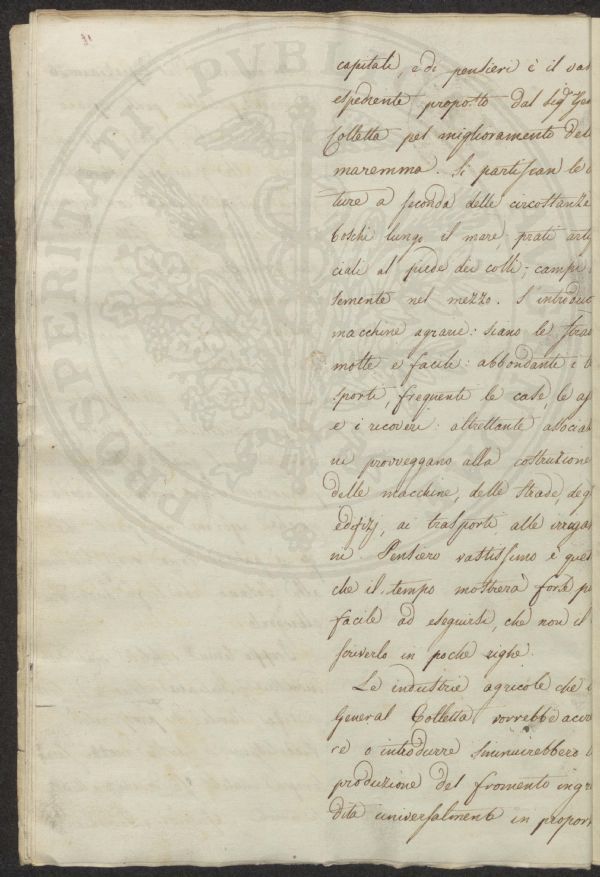 capitali, e di pensieri è il vas
espediente proposto dal Sig.r Gen
Colletta pel miglioramento del
maremma. Si partiscan le
ture a seconda delle circostanze
boschi lungo il mare; prati arti
ciali al piede dei colli; campi
semente nel mezzo. S'introduc
macchine agrarie: siano le stra
molte e facili: abbondanti i t
sporti, frequenti le case, le a
e i ricoveri: altrettante associa
ni provveggano alla costruzione
delle macchine, delle strade, deg
edifizj, ai trasporti, alle irriga
ni. Pensiero vastissimo è ques
che il tempo mostrerà forse p
facile ad eseguirsi, che non il
scriverlo in poche righe.
Le industrie agricole che
General Colletta vorrebbe accre
ce o introdurre sminuirebbero
produzione del fromento ingra
dita universalmente in propor
PROSPERITATI PVBLICAE